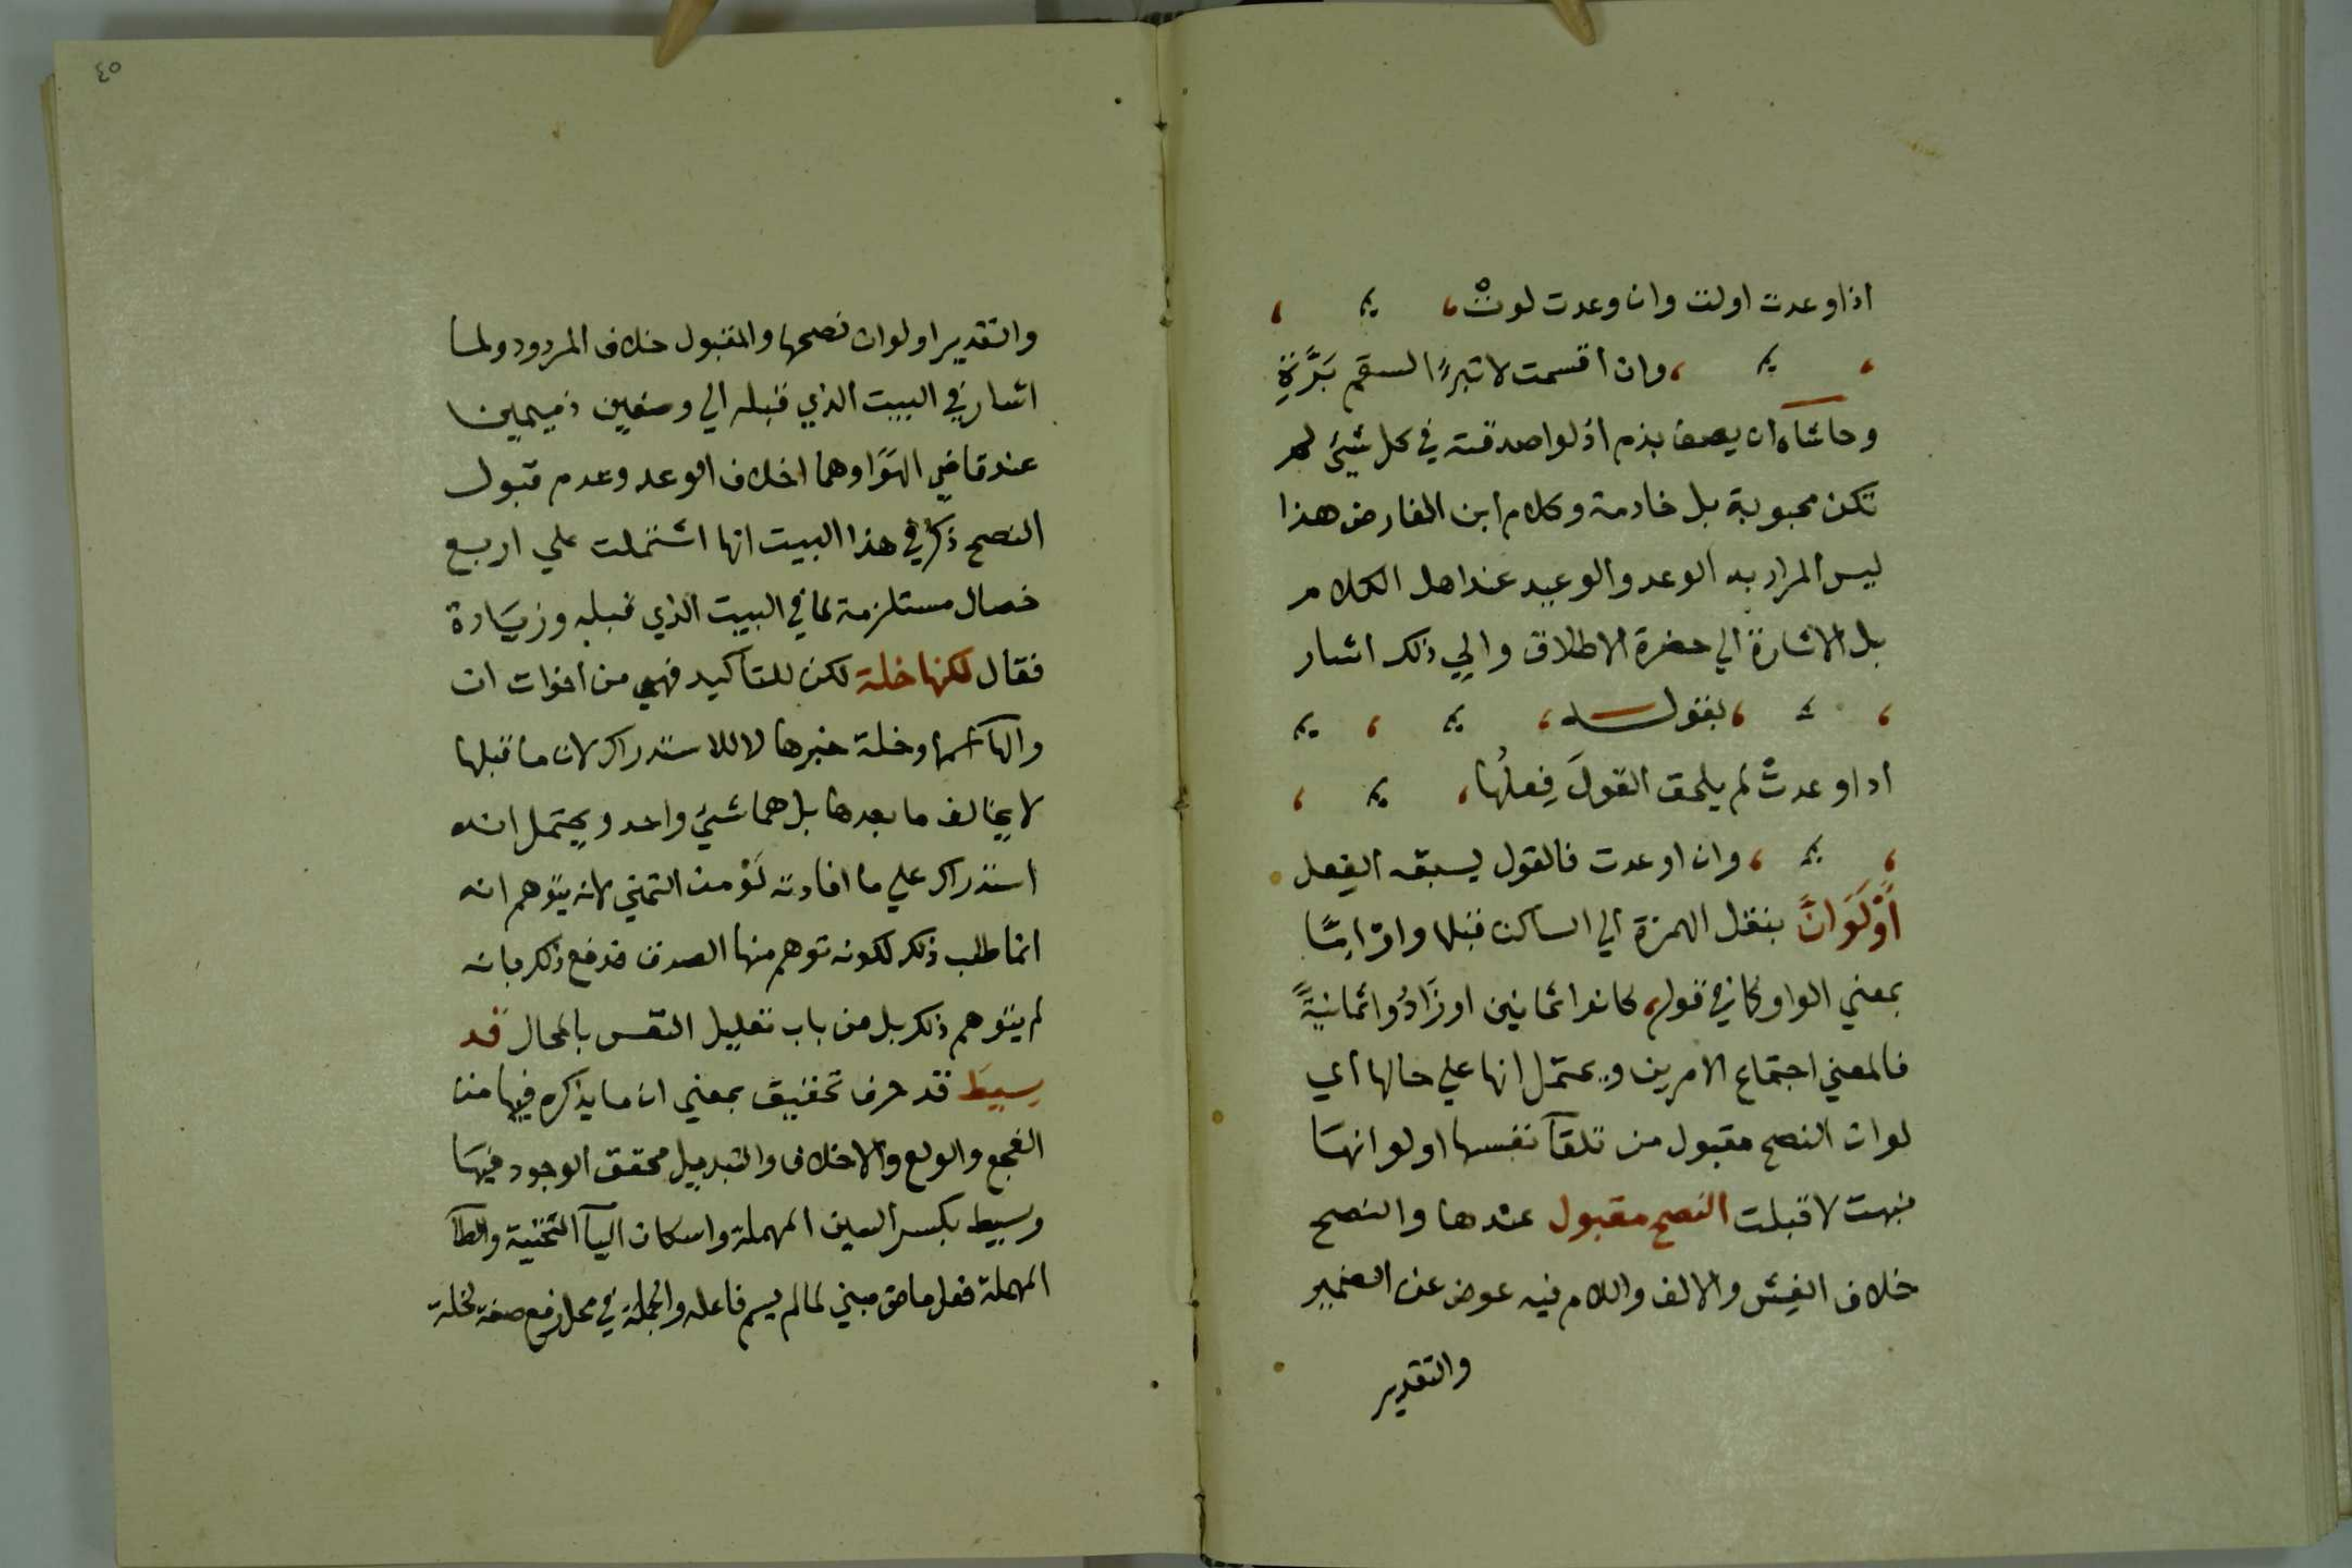 اذا وعدت اولت وان وعدت لوتْ
وان اقسمت لا تبرءُ السقم بَرَّةِ
وحاشاه ان يصف بذم اذ لو اصدقته في كل شيئ لم
تكن محبوبة بل خادمة وكلام ابن الفارض هذا
ليس المراد به الوعد والوعيد عند اهل الكلام
بل الاشارة الي حضرة الاطلاق والي ذلك اشار
بقوله
اد اوعدتْ لم يلحق القولَ فِعلُها
وان اوعدت فالقول يسبقه الفعل
أوْلَوَانَّ بنقل الهمزة الي الساكن قبلها واوْ امّا
بمعني الواو كما في قوله كانوا ثمانين او زَادُوا ثمانيةً
فالمعني اجتماع الامرين ويحتمل انها علي حالها اي
لوان النصح مقبول من تلقآ نفسها اولو انها
نبهت لا قبلت النصح مقبول عندها والنصح
خلاف الغِش والالف واللام فيه عوض عن الضمير
والتقدير
٤٥
والتقدير اولوان نصحها والمقبول خلاف المردود ولما
اشار في البيت الذي قبله الي وصفين ذميمين
عند قاضي الهوَا وهما اخلاف الوعد وعدم قبول
النصح ذكر في هذا البيت انها اشتملت علي اربع
خصال مستلزمة لما في البيت الذي قبله وزيادة
فقال لكنها خلة لكن للتاكيد فهي من اخوات ان
والهآ اسمها وخلة خبرها لا للاستدراك لان ما قبلها
لا يخالف ما بعدها بل هما شيئ واحد ويحتمل انه
استدراك علي ما افادته لَوْ من التمني لانه يتوهم انه
انما طلب ذلك لكونه توهم منها الصدق فدفع ذلك بانه
لم يتوهم ذلك بل من باب تعليل النفس بالمحال قد
سِيطَ قد حرف تحقيق بمعني ان ما يذكره فيها من
الفجع والولع والاخلاف والتبديل محقق الوجود فيها
وسيط بكسر السين المهملة واسكان اليآ التحتية والطآ
المهملة فعل ماض مبني لما لم يسم فاعله والجملة في محل رفع صفة لخلة